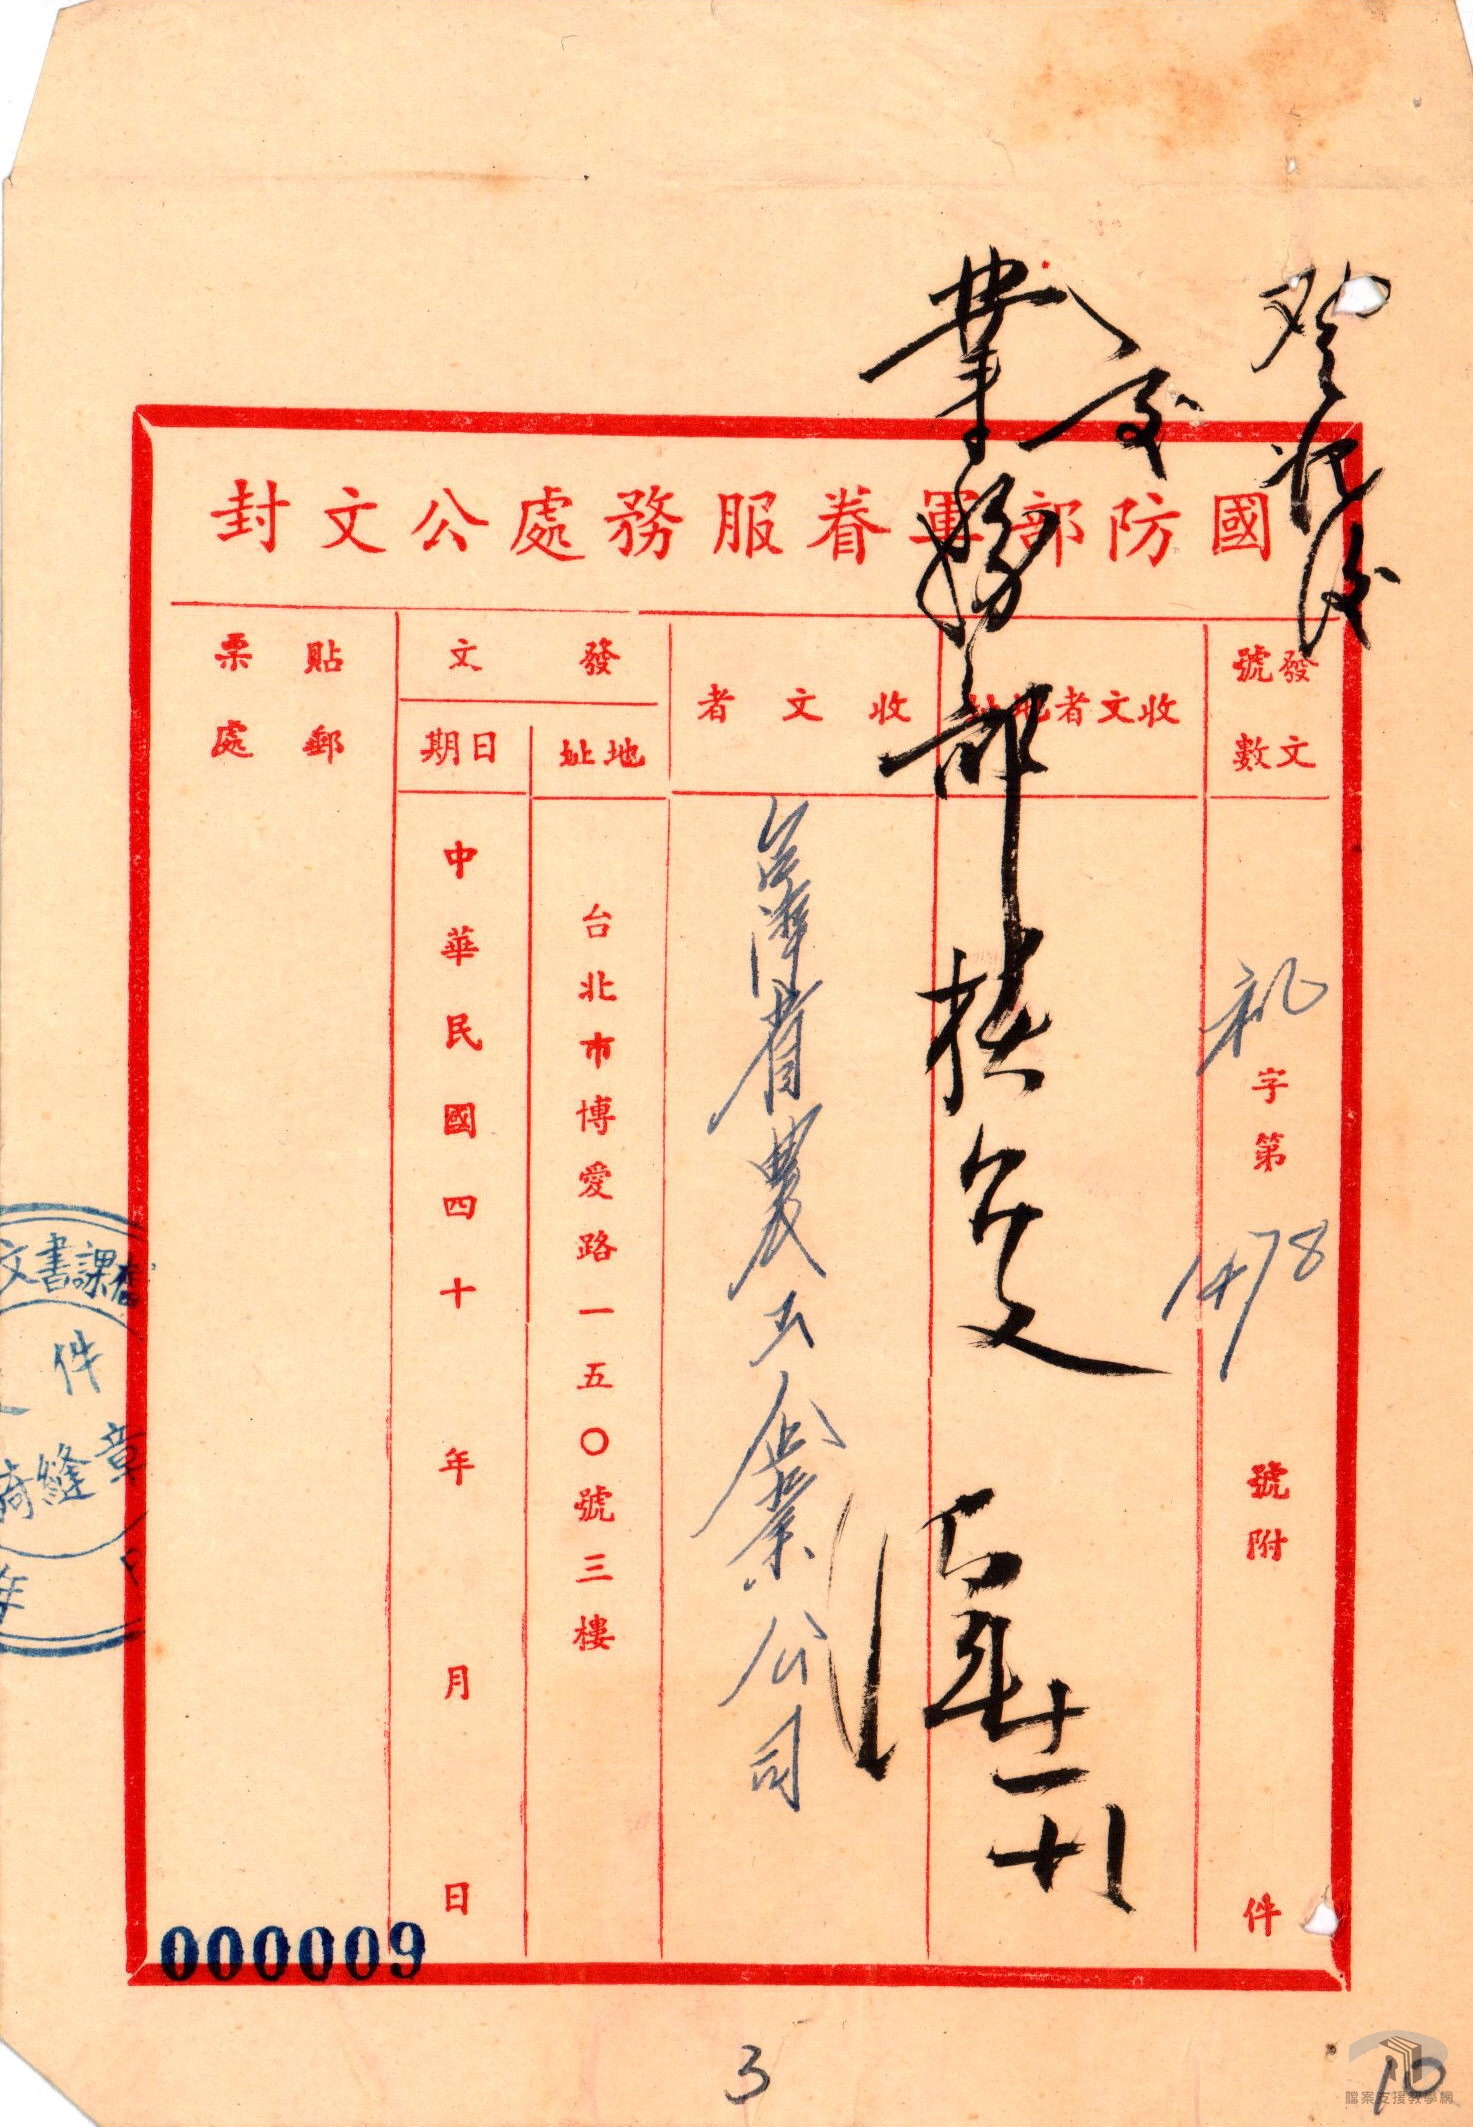 國防部軍眷服務處公文封
發文
號數
字第1478號附件
收文者地址
收文者
台灣省農工企業公司
發文
地址
台北市博愛路一五〇號三樓
日期
中華民國四十年月日
貼郵
票處
業務部
文書課
件
騎縫章
000009
3
10
檔案支援教學網